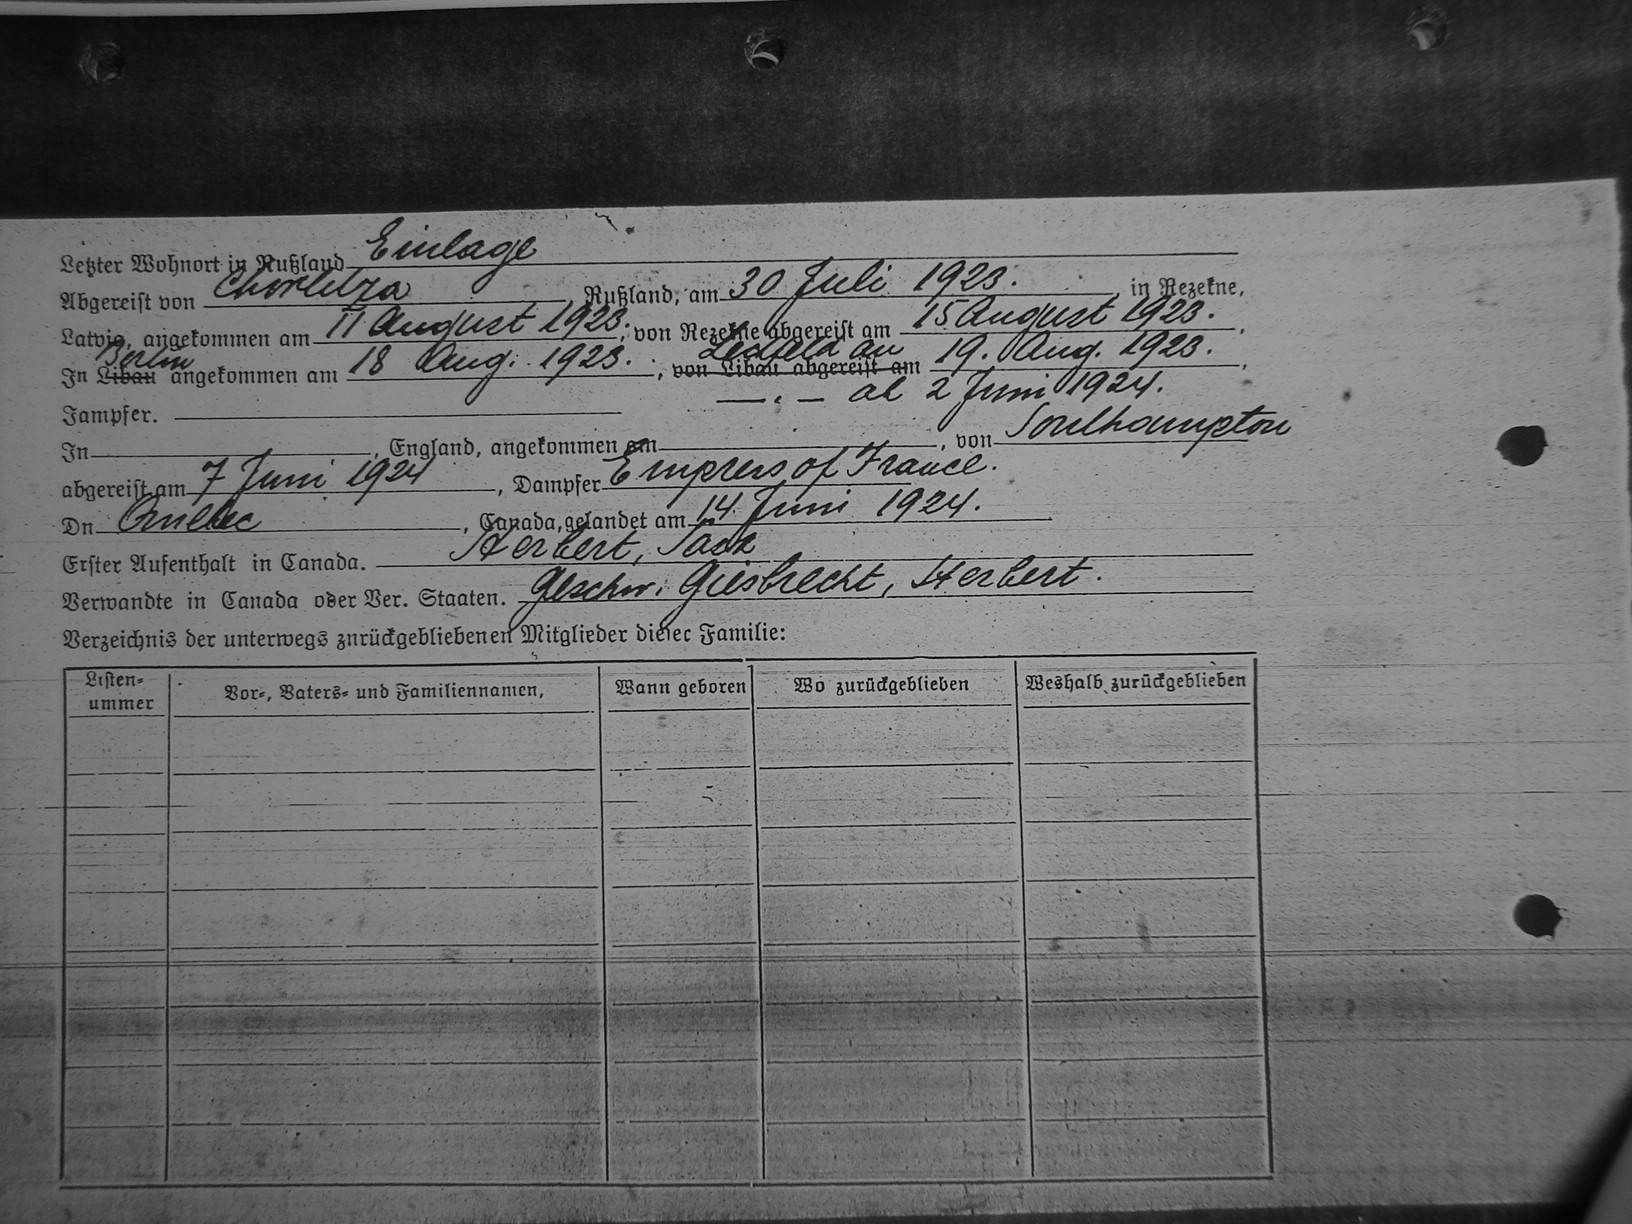 Letzter Wohnort in Rußland Einlage
Abgereist von Chortitza, Rußland, am 30 Juli 1923. in Rezekne,
Latvia, angekommen am 11 August 1923. von Rezekne abgereist am 15 August 1923.,
Berlin Lechfeld an
In Libau angekommen am 18 Aug. 1923., von Libau abgereist am 19. Aug. 1923.,
— „ — ab 2 Juni 1924.
Jampfer.
In , England, angekommen am , von Southampton
abgereist am 7 Juni 1924, Dampfer Empress of France.
Dn Quebec, Canada, gelandet am 14. Juni 1924.
Erster Aufenthalt in Canada. Herbert, Sask
Verwandte in Canada oder Ver. Staaten. Geschw. Giesbrecht, Herbert.
Verzeichnis der unterwegs znrückgebliebenen Mitglieder diesec Familie:
Listen-
ummer
Vor-, Vaters- und Familiennamen, Wann geboren Wo zurückgeblieben Weshalb zurückgeblieben